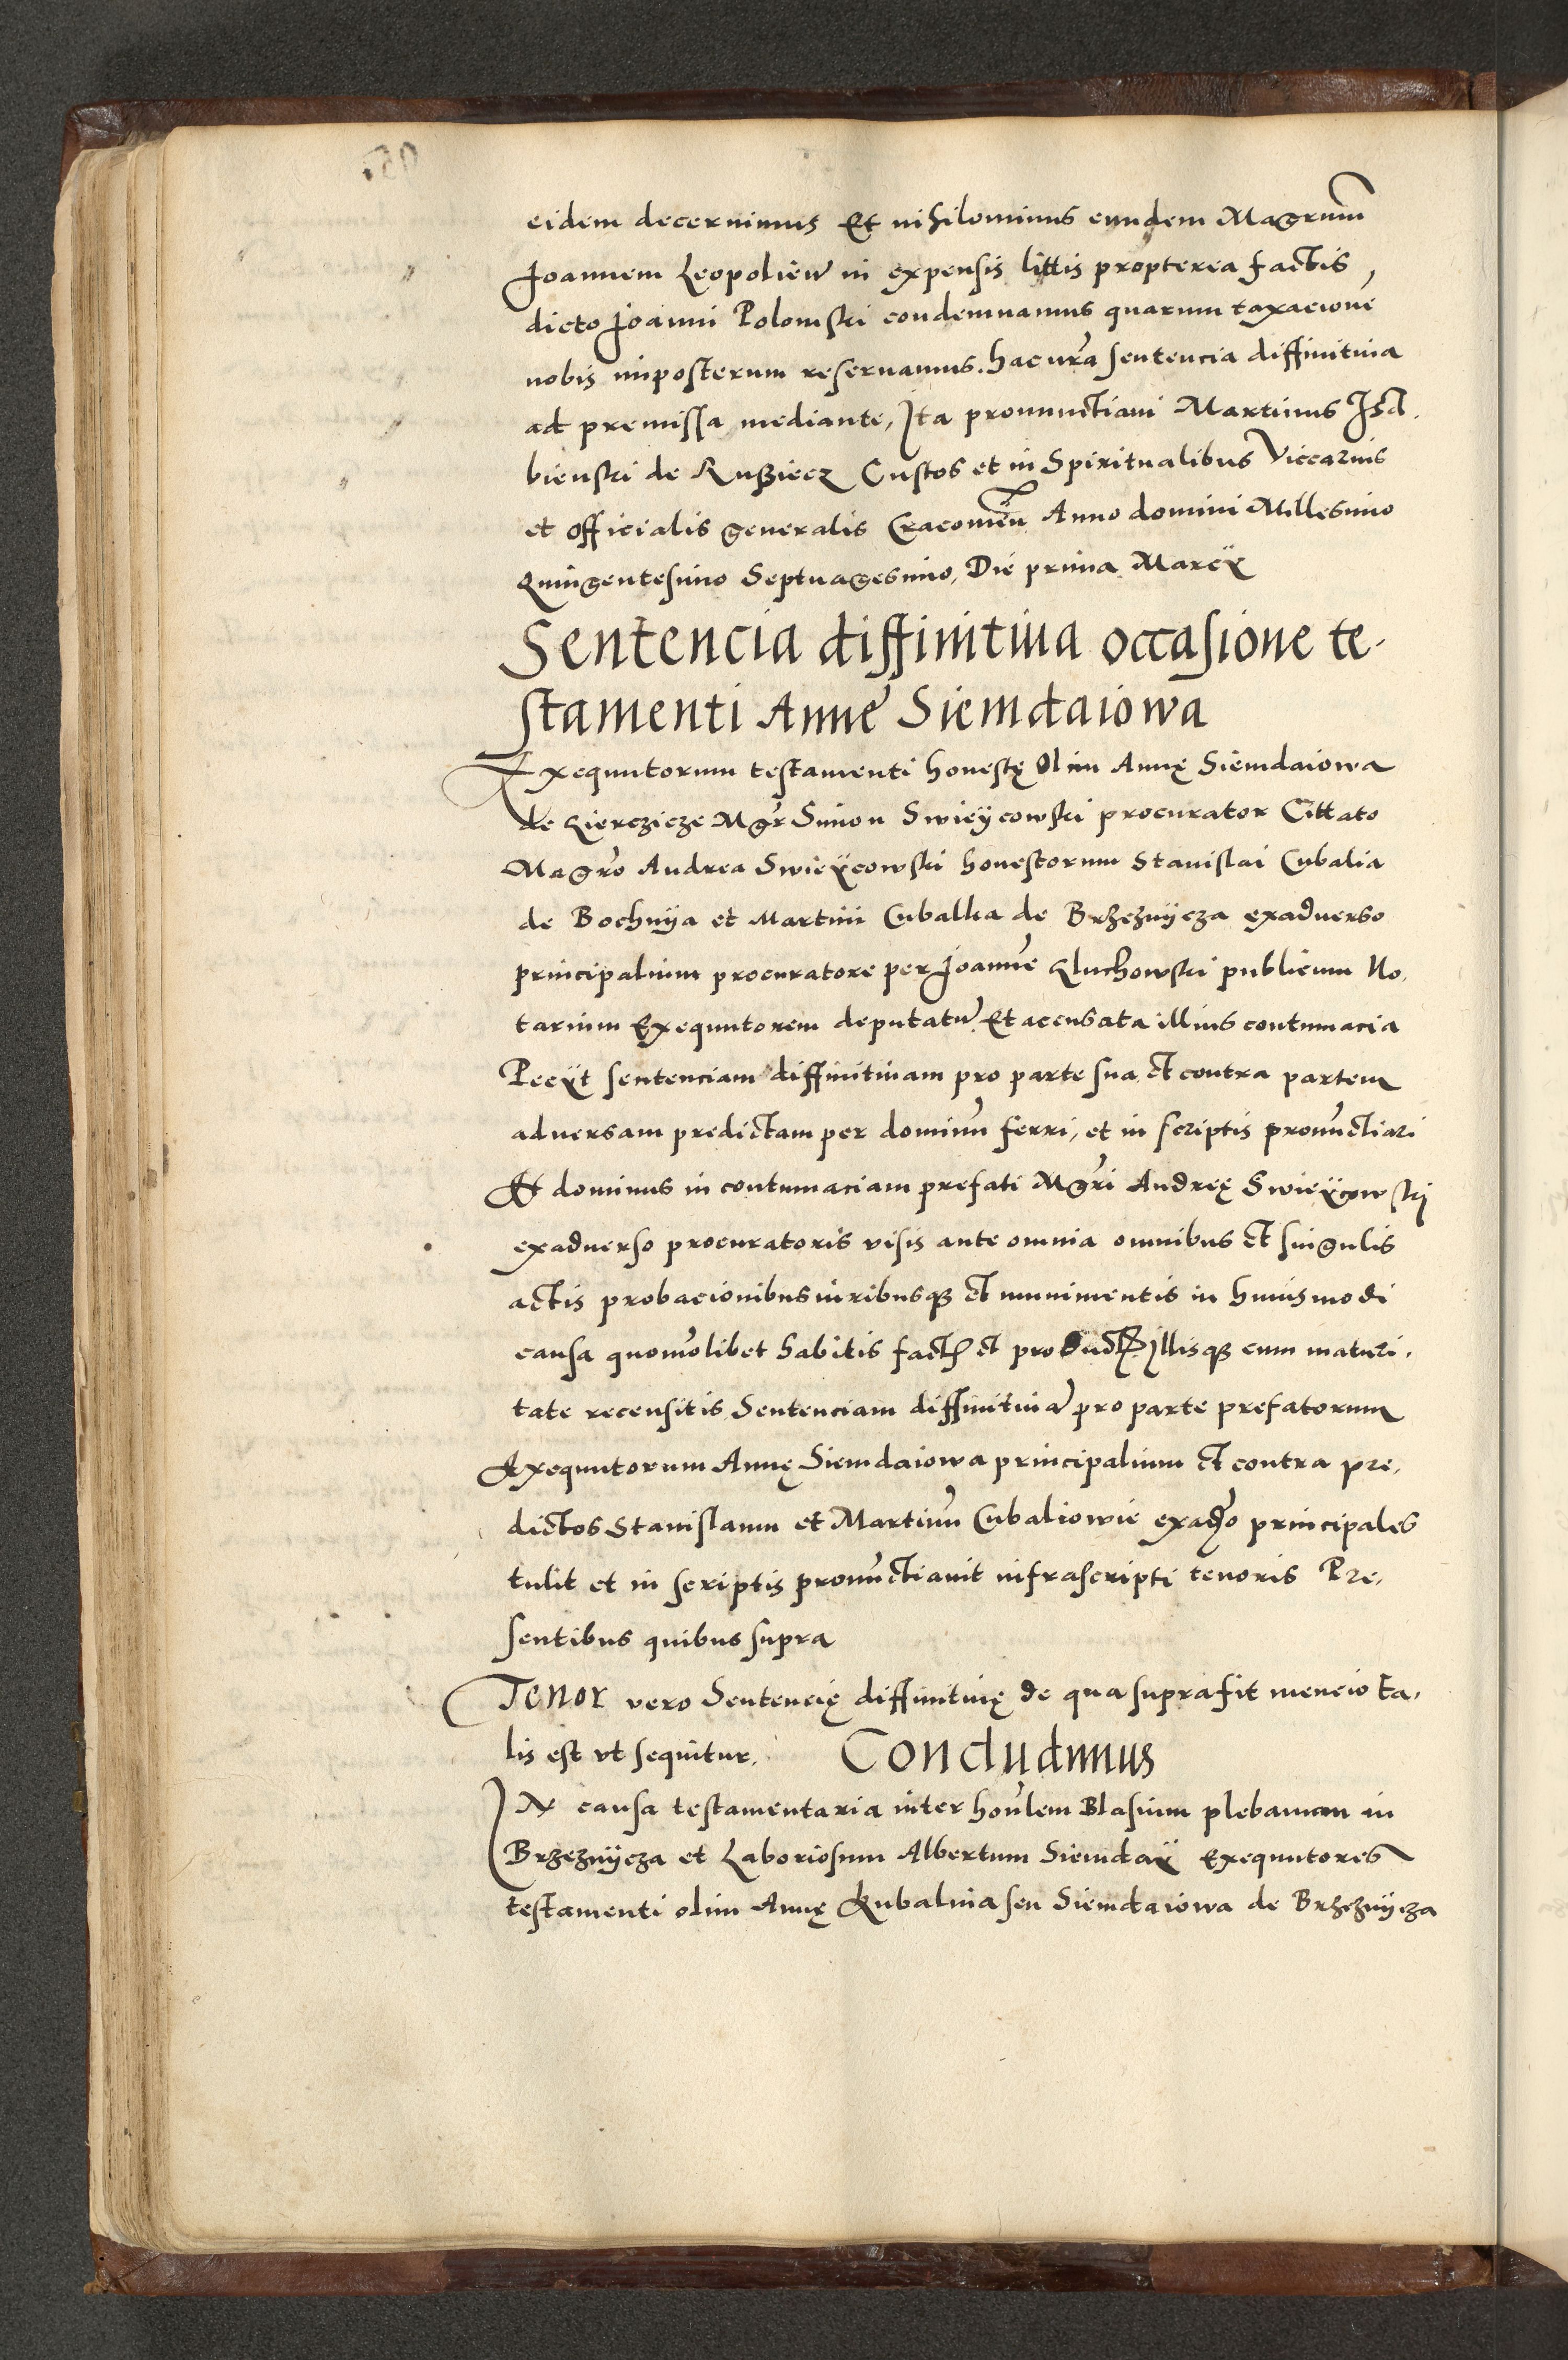 eidem decernimus Et nihilominus eundem Magrum
Joannem Leopolien in expensis littis propterea factis
dicto Joanni Polomski condemnamus quarum taxacione
nobis inposterum reservamus. hac nra sentencia diffinitiva
ad premissa mediante, Ita pronunctiavi Martinus Isd
bienski de Rusziecz Custos et in Spiritualibus Viccarius
et Officialis generalis Cracovien Anno domini Millesimo
Quingentesimo Septuagesimo, Die prima Marcÿ
Sentencia diffinitiua occasione te-
stamenti Anne Siemdaiowa
Exequutorum testamenti honestę Olim Annę Siemdaiowa
de Lierczicze Mgr Simon Swieÿcowski procurator Cittato
Magro Andrea Swieÿcowski honestorum Stanislai Cubalia
de Bochnÿa et Martini Cubalka de Brzeznÿcza exadverso
principalium procuratore per Joanne Gluchowski publicum No,
tarium Exequutorem deputatu Et accusata illius contumacia
Peciit sentenciam diffinitivam pro parte sua et contra partem
adversam predictam per dominu ferri, et in scriptis pronuctiari
Et dominus in contumaciam prefati Mgri Andreę Swieÿcowski
exadverso procuratoris visis ante omnia omnibus et singulis
actis probacionibus iuribusq et munimentis in huiusmodi
causa quomolibet habitis fact et product illisq cum maturi,
tate recensitis Sentenciam diffinitiva pro parte prefatorum
Exequutorum Annę Siemdaiowa principalium et contra pre,
dictos Stanislaum et Martinu Cubaliowie exado principales
tulit et in scriptis pronuctiavit infrascripti tenoris Pre,
sentibus quibus supra
Tenor vero Sentencię diffinitivę de qua supra fit mencio ta,
lis est ut sequitur. Concludimus
IN causa testamentaria inter honlem Blasium plebanum in
Brzeznÿcza et Laboriosum Albertum Siemdaÿ Exequutores
testamenti olim Annę Kubalina seu Siemdaiowa de Brzeznÿcza